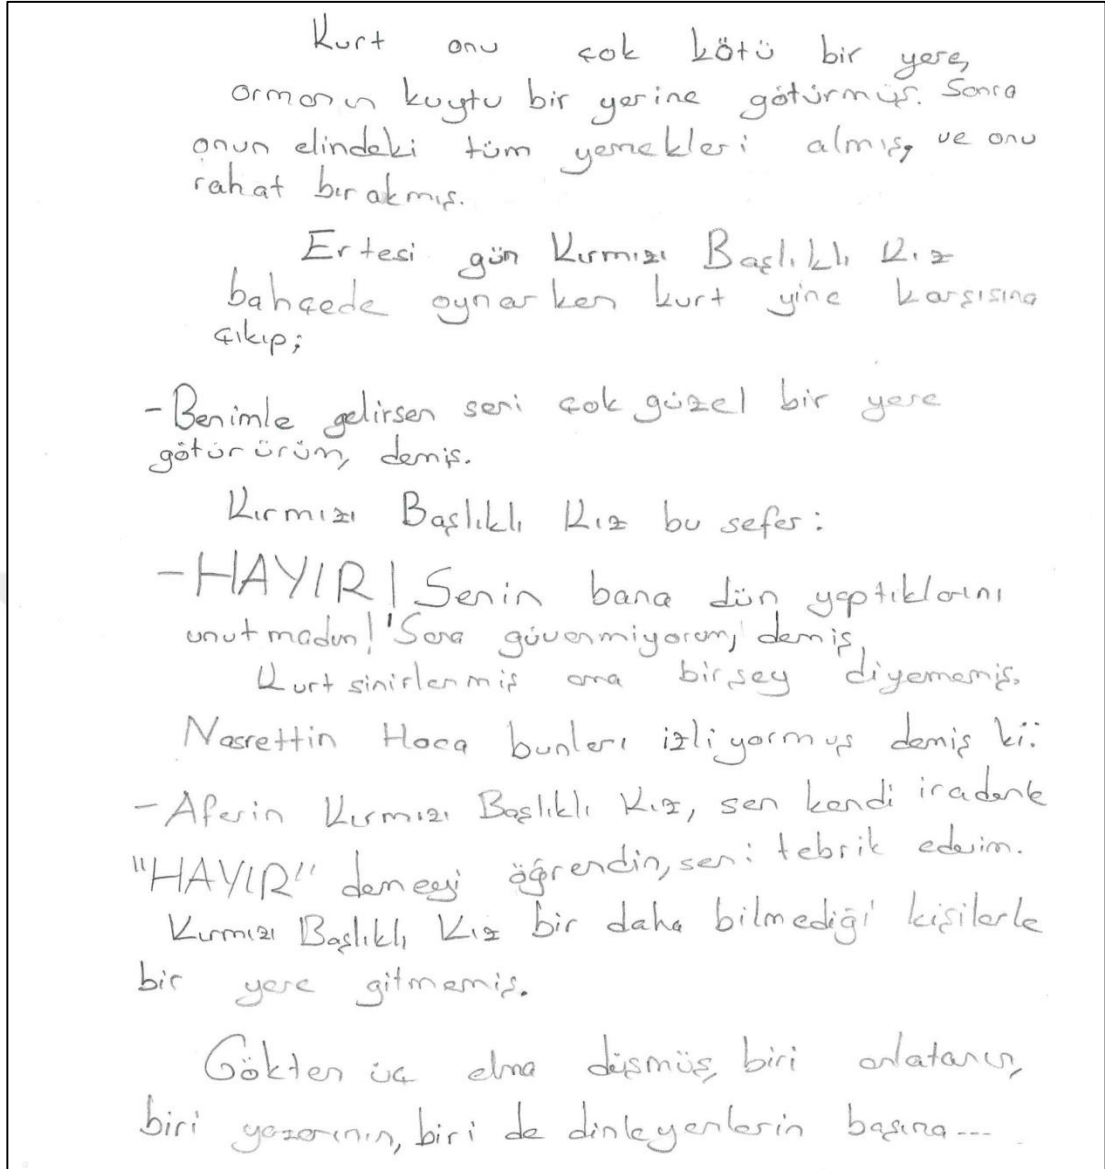 Kurt onu çok kötü bir yere,
ormanın kuytu bir yerine götürmüş. Sonra
onun elindeki tüm yemekleri almış, ve onu
rahat bırakmış.
Ertesi gün Kırmızı Başlıklı Kız
bahçede oynarken kurt yine karşısına
çıkıp;
-Benimle gelirsen seni çok güzel bir yere
götürürüm, demiş.
Kırmızı Başlıklı Kız bu sefer:
-HAYIR! Senin bana dün yaptıklarını
unutmadım! Sana güvenmiyorum, demiş,
Kurt sinirlenmiş ama birşey diyememiş.
Nasrettin Hoca bunları izliyormuş demiş ki:
-Aferin Kırmızı Başlıklı Kız, sen kendi iradenle
"HAYIR" demeyi öğrendin, seni tebrik ederim.
Kırmızı Başlıklı Kız bir daha bilmediği kişilerle
bir yere gitmemiş.
Gökten üç elma düşmüş, biri anlatanın,
biri yazarının, biri de dinleyenlerin başına...